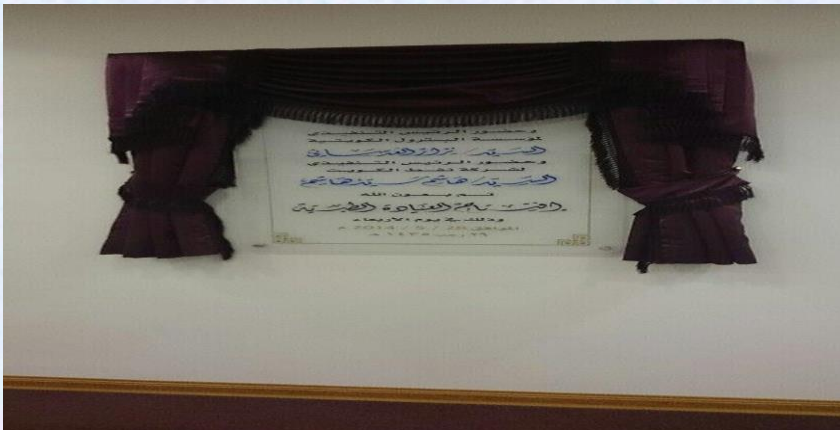 وحضور الرئيس التنفيذي
لمؤسسة البترول الكويتية
السيد / نزار العدساني
وحضور الرئيس التنفيذي
لشركة نفط الكويت
السيد / هاشم سيد هاشم
تم بعون الله
افتتاح العيادة الطبية
وذلك في يوم الأربعاء
الموافق 28 / 5 / 2014 م
٢٩ رجب ١٤٣٥ هـ